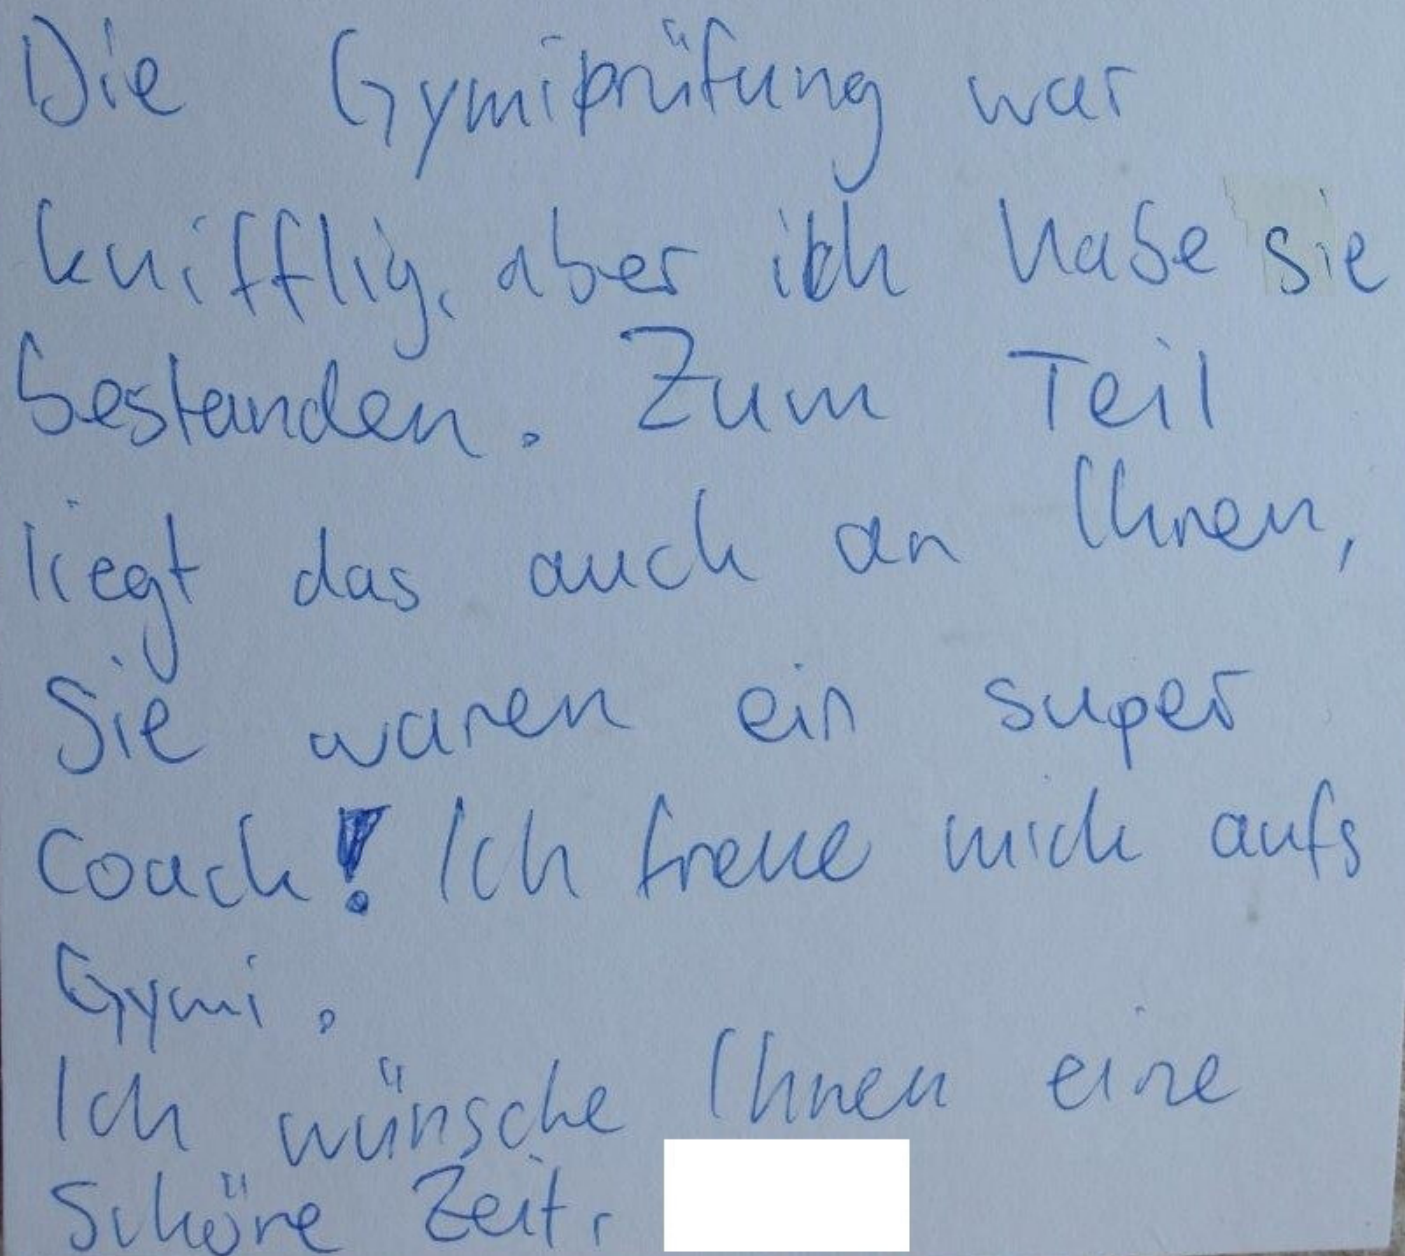 Die Gymiprüfung war
knifflig, aber ich habe sie
bestanden. Zum Teil
liegt das auch an Ihnen,
Sie waren ein super
Coach! Ich freue mich aufs
Gymi.
Ich wünsche Ihnen eine
Schöne Zeit,